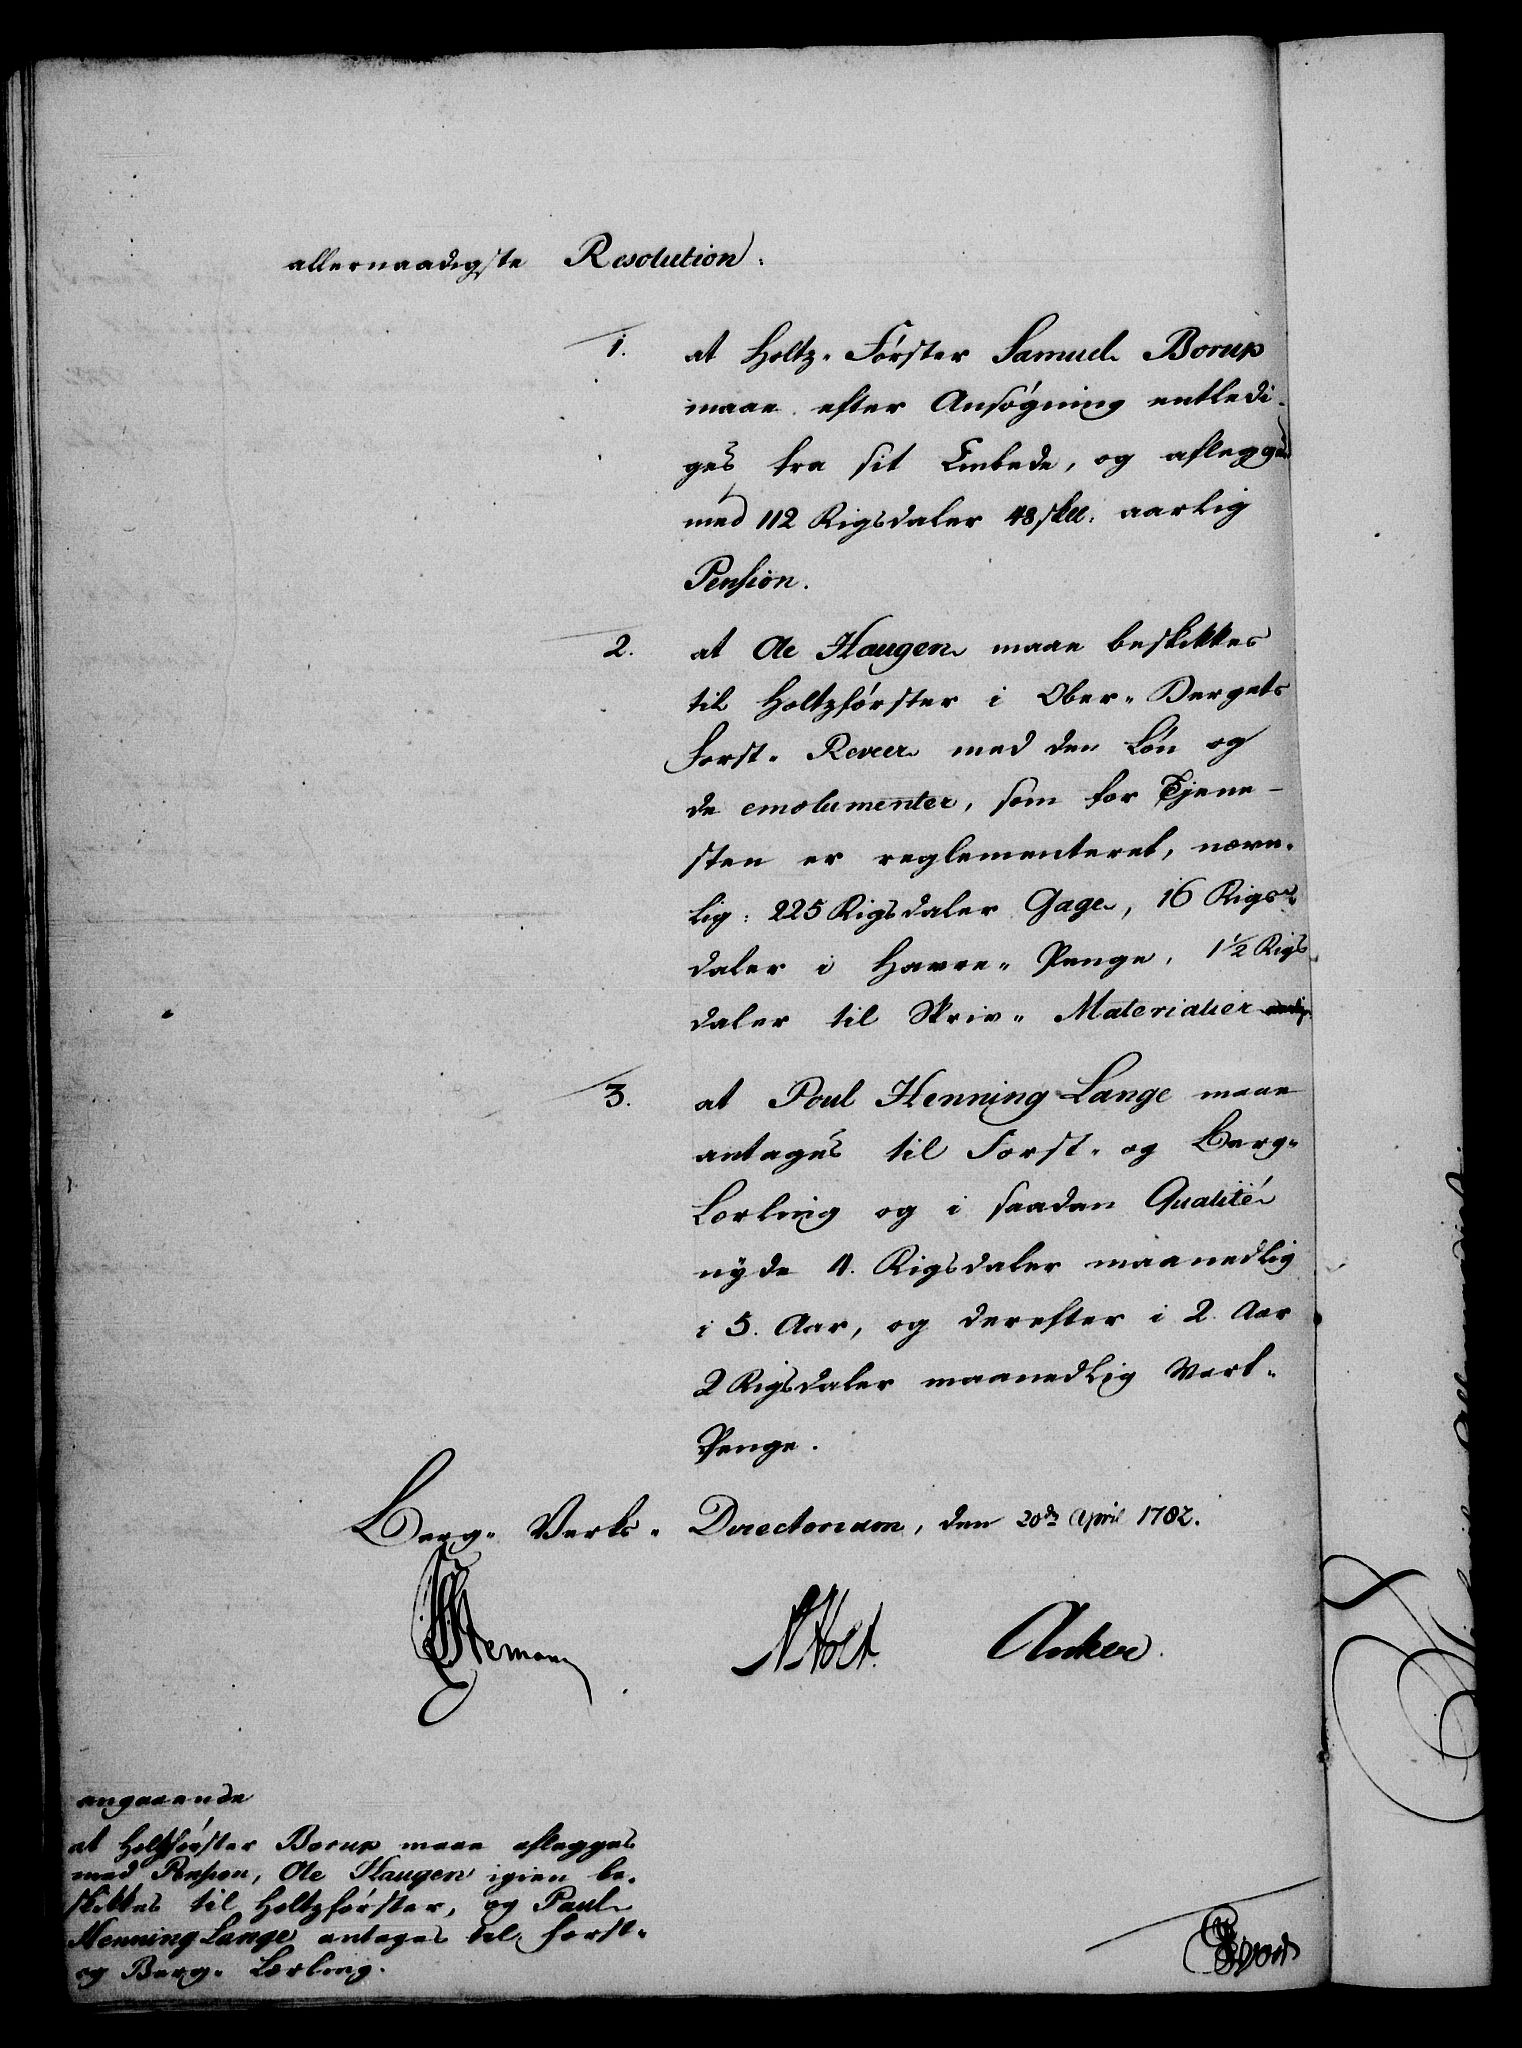 allernaadigste Resolution.
1. at Holtz-Förster Samuel Borup
maae efter Ansögning entledi-
ges fra sit Embede, og aflegges
med 112 Rigsdaler 48 skll: aarlig
Pension.
2. at Ole Haugen maae beskikkes
til Holtzförster i Ober-Bergets
Forst-Reveer med den Løn og
de emolumenter, som for Tjene-
sten er reglementeret, nem-
lig: 225 Rigsdaler Gage, 16 Rigs-
daler i Havre-Penge, 1 1/2 Rigs
daler til Skriv-Materialier
3. at Poul Henning Lange maae
antages til Forst- og Berg-
Lærling og i saadan Qualité
nyde 4. Rigsdaler maanedlig
i 5. Aar, og derefter i 2 Aar
2 Rigsdaler maanedlig Vart-
Penge.
Berg-Verks-Directorium, den 20de April 1782.
Holt. Anker.
angaaende
at Holtzförster Borup maae aflegges
med Pension, Ole Haugen igien be-
skikkes til Holtzförster, og Paul
Henning Lange antages til Forst-
og Berg-Lærling.